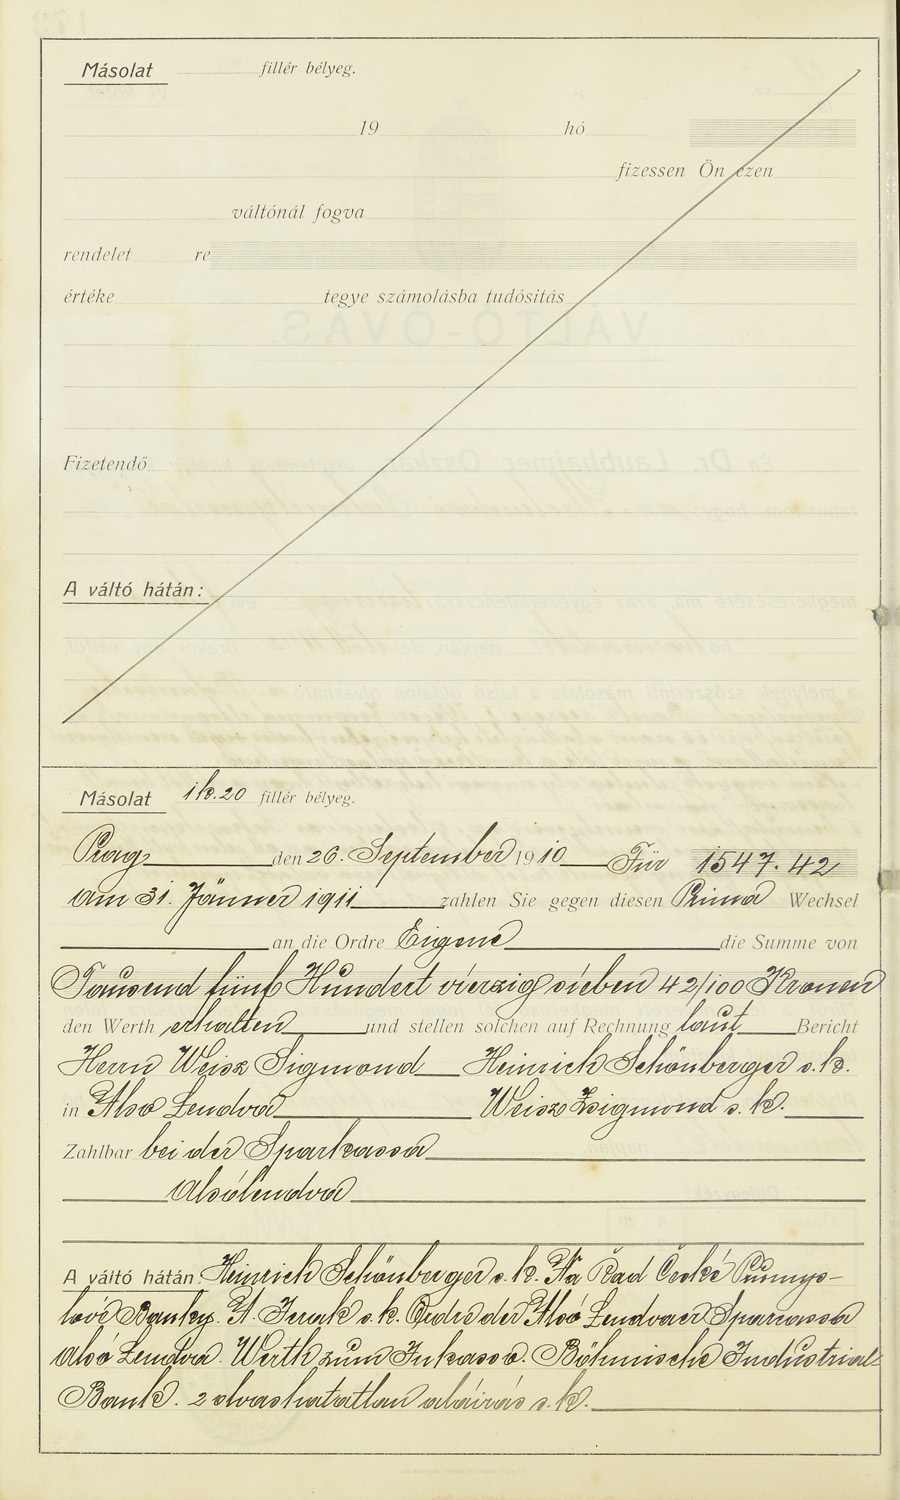 Másolat fillér bélyeg.
19 hó
fizessen Ön ezen
váltónál fogva
rendelet re
értéke tegye számolásba tudósitás
Fizetendő
A váltó hátán:
Másolat 1 k. 20 fillér bélyeg.
Prag, den 26. September 1910 Für 1547.42
am 31. Jänner 1911 zahlen Sie gegen diesen Prima Wechsel
an die Ordre Eigene die Summe von
Tausend fünf Hundert vierzig sieben 42/100 Kronen
den Werth erhalten und stellen solchen auf Rechnung laut Bericht
Herrn Weisz Sigmond Heinrich Schönberger s. k.
in Alsó Lendva Weisz Zsigmond s. k.
Zahlbar bei der Sparkassa
Alsólendva
A váltó hátán: Heinrich Schönberger s. k. Na Řad České Průmys-
lové Banky. s. k. Ordre der Alsó Lendvaer Sparcassa
Alsó Lendva. Werth zum Inkasso. Böhmische Industrial-
Bank. 2 olvashatatlan aláirás s. k.